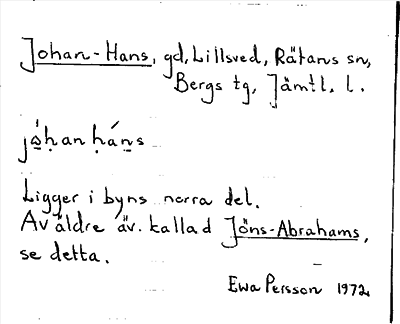 Johan-Hans, gd, Lillsved, Rätans sn,
Bergs tg, Jämtl. l.
jó̱ḥan ḥáṉs
Ligger i byns norra del.
Av äldre äv. kallad Jöns-Abrahams,
se detta.
Ewa Persson 1972